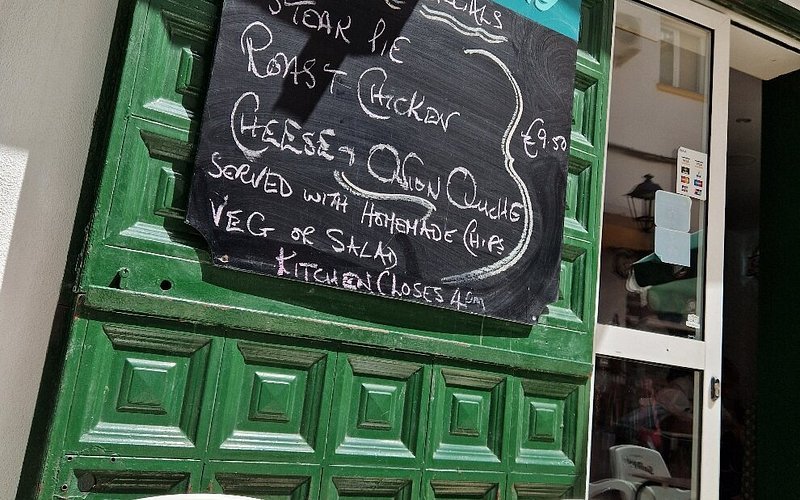 SPECIALS
STEAK PIE
ROAST CHICKEN
CHEESE + ONION QUICHE
€9.50
SERVED WITH HOMEMADE CHIPS
VEG OR SALAD
KITCHEN CLOSES 4pm